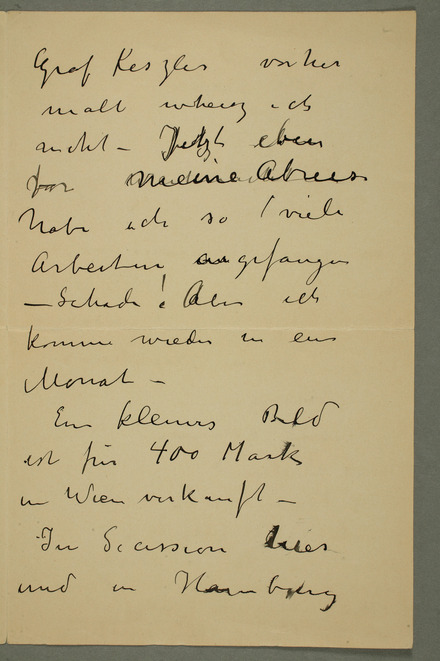 Graf Keszler vorher
malt ich
nicht – Jetzt eben
vor meine Abreis
habe ich so viele
Arbeiten angefangen
– Schade! Aber ich
komme wieder in ein
Monat –
Ein kleines Bild
ist für 400 Mark
in Wien verkauft –
In Secession hier
und in Hamburg